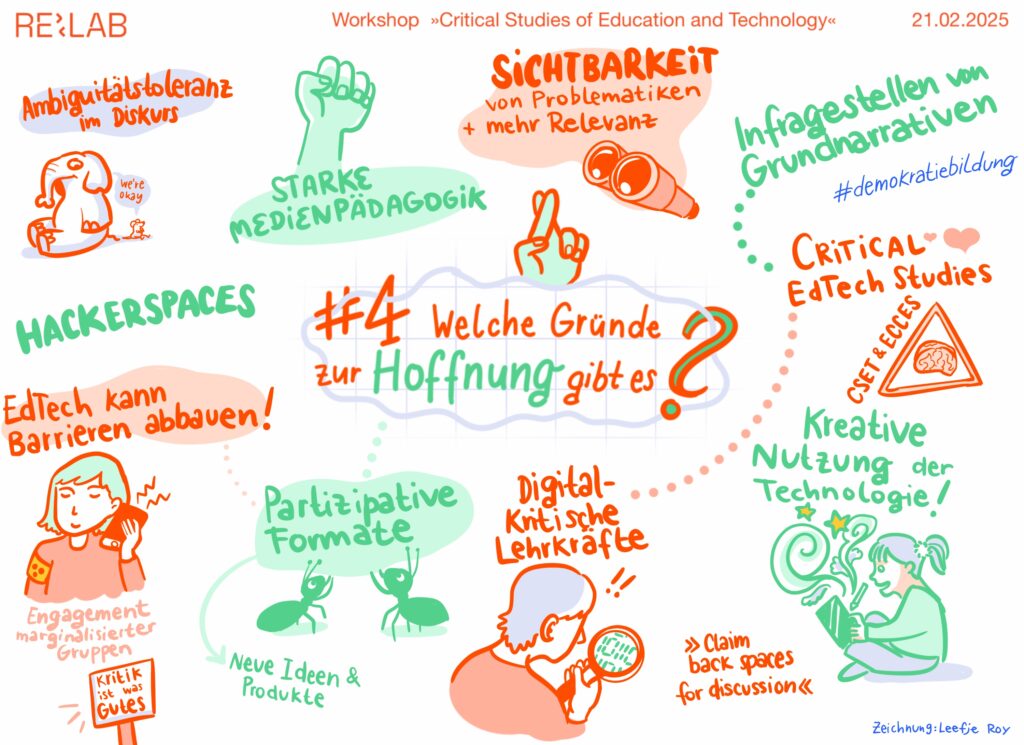 RE:LAB
Workshop »Critical Studies of Education and Technology«
21.02.2025
Ambiguitätstoleranz
im Diskurs
we're
okay
STARKE
MEDIENPÄDAGOGIK
SiCHTBARKEiT
von Problematiken
+ mehr Relevanz
Infragestellen von
Grundnarrativen
#demokratiebildung
CRiTiCAL
EdTech Studies
CSET & ECCES
HACKERSPACES
#4 Welche Gründe
zur Hoffnung gibt es ?
EdTech kann
Barrieren abbauen!
Engagement
marginalisierter
Gruppen
KRiTiK
ist was
GUTES
Partizipative
Formate
Neue Ideen &
Produkte
Digital-
Kritische
Lehrkräfte
!!
Kreative
Nutzung der
Technologie!
»Claim
back spaces
for discussion«
Zeichnung: Leefje Roy